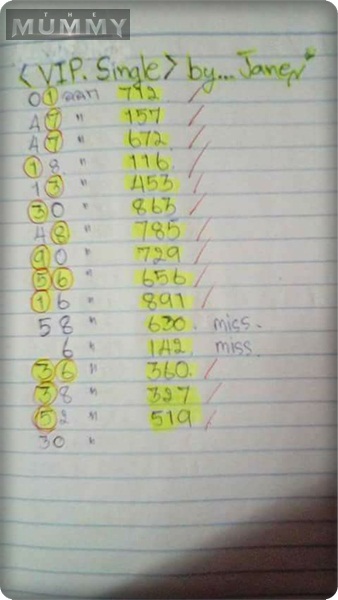 THE
MUMMY
<VIP. Single> by... Janen
01 ออก 712 /
47 " 157 /
47 " 672 /
18 " 116 /
13 " 453 /
30 " 863 /
48 " 785 /
90 " 729 /
56 " 656 /
16 " 891 /
58 " 630. miss.
6 " 142. miss.
36 " 360. /
38 " 327 /
52 " 519 /
30 "